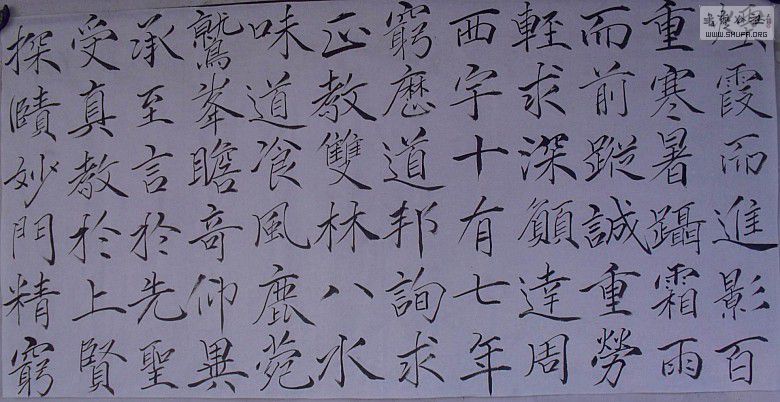 霞而進影百
重寒暑躡霜雨
而前蹤誠重勞
輕求深願達周
西宇十有七年
窮歷道邦詢求
正教雙林八水
味道飡風鹿菀
鷲峯瞻奇仰異
承至言於先聖
受真教於上賢
探賾妙門精窮
WWW.SHUFA.ORG